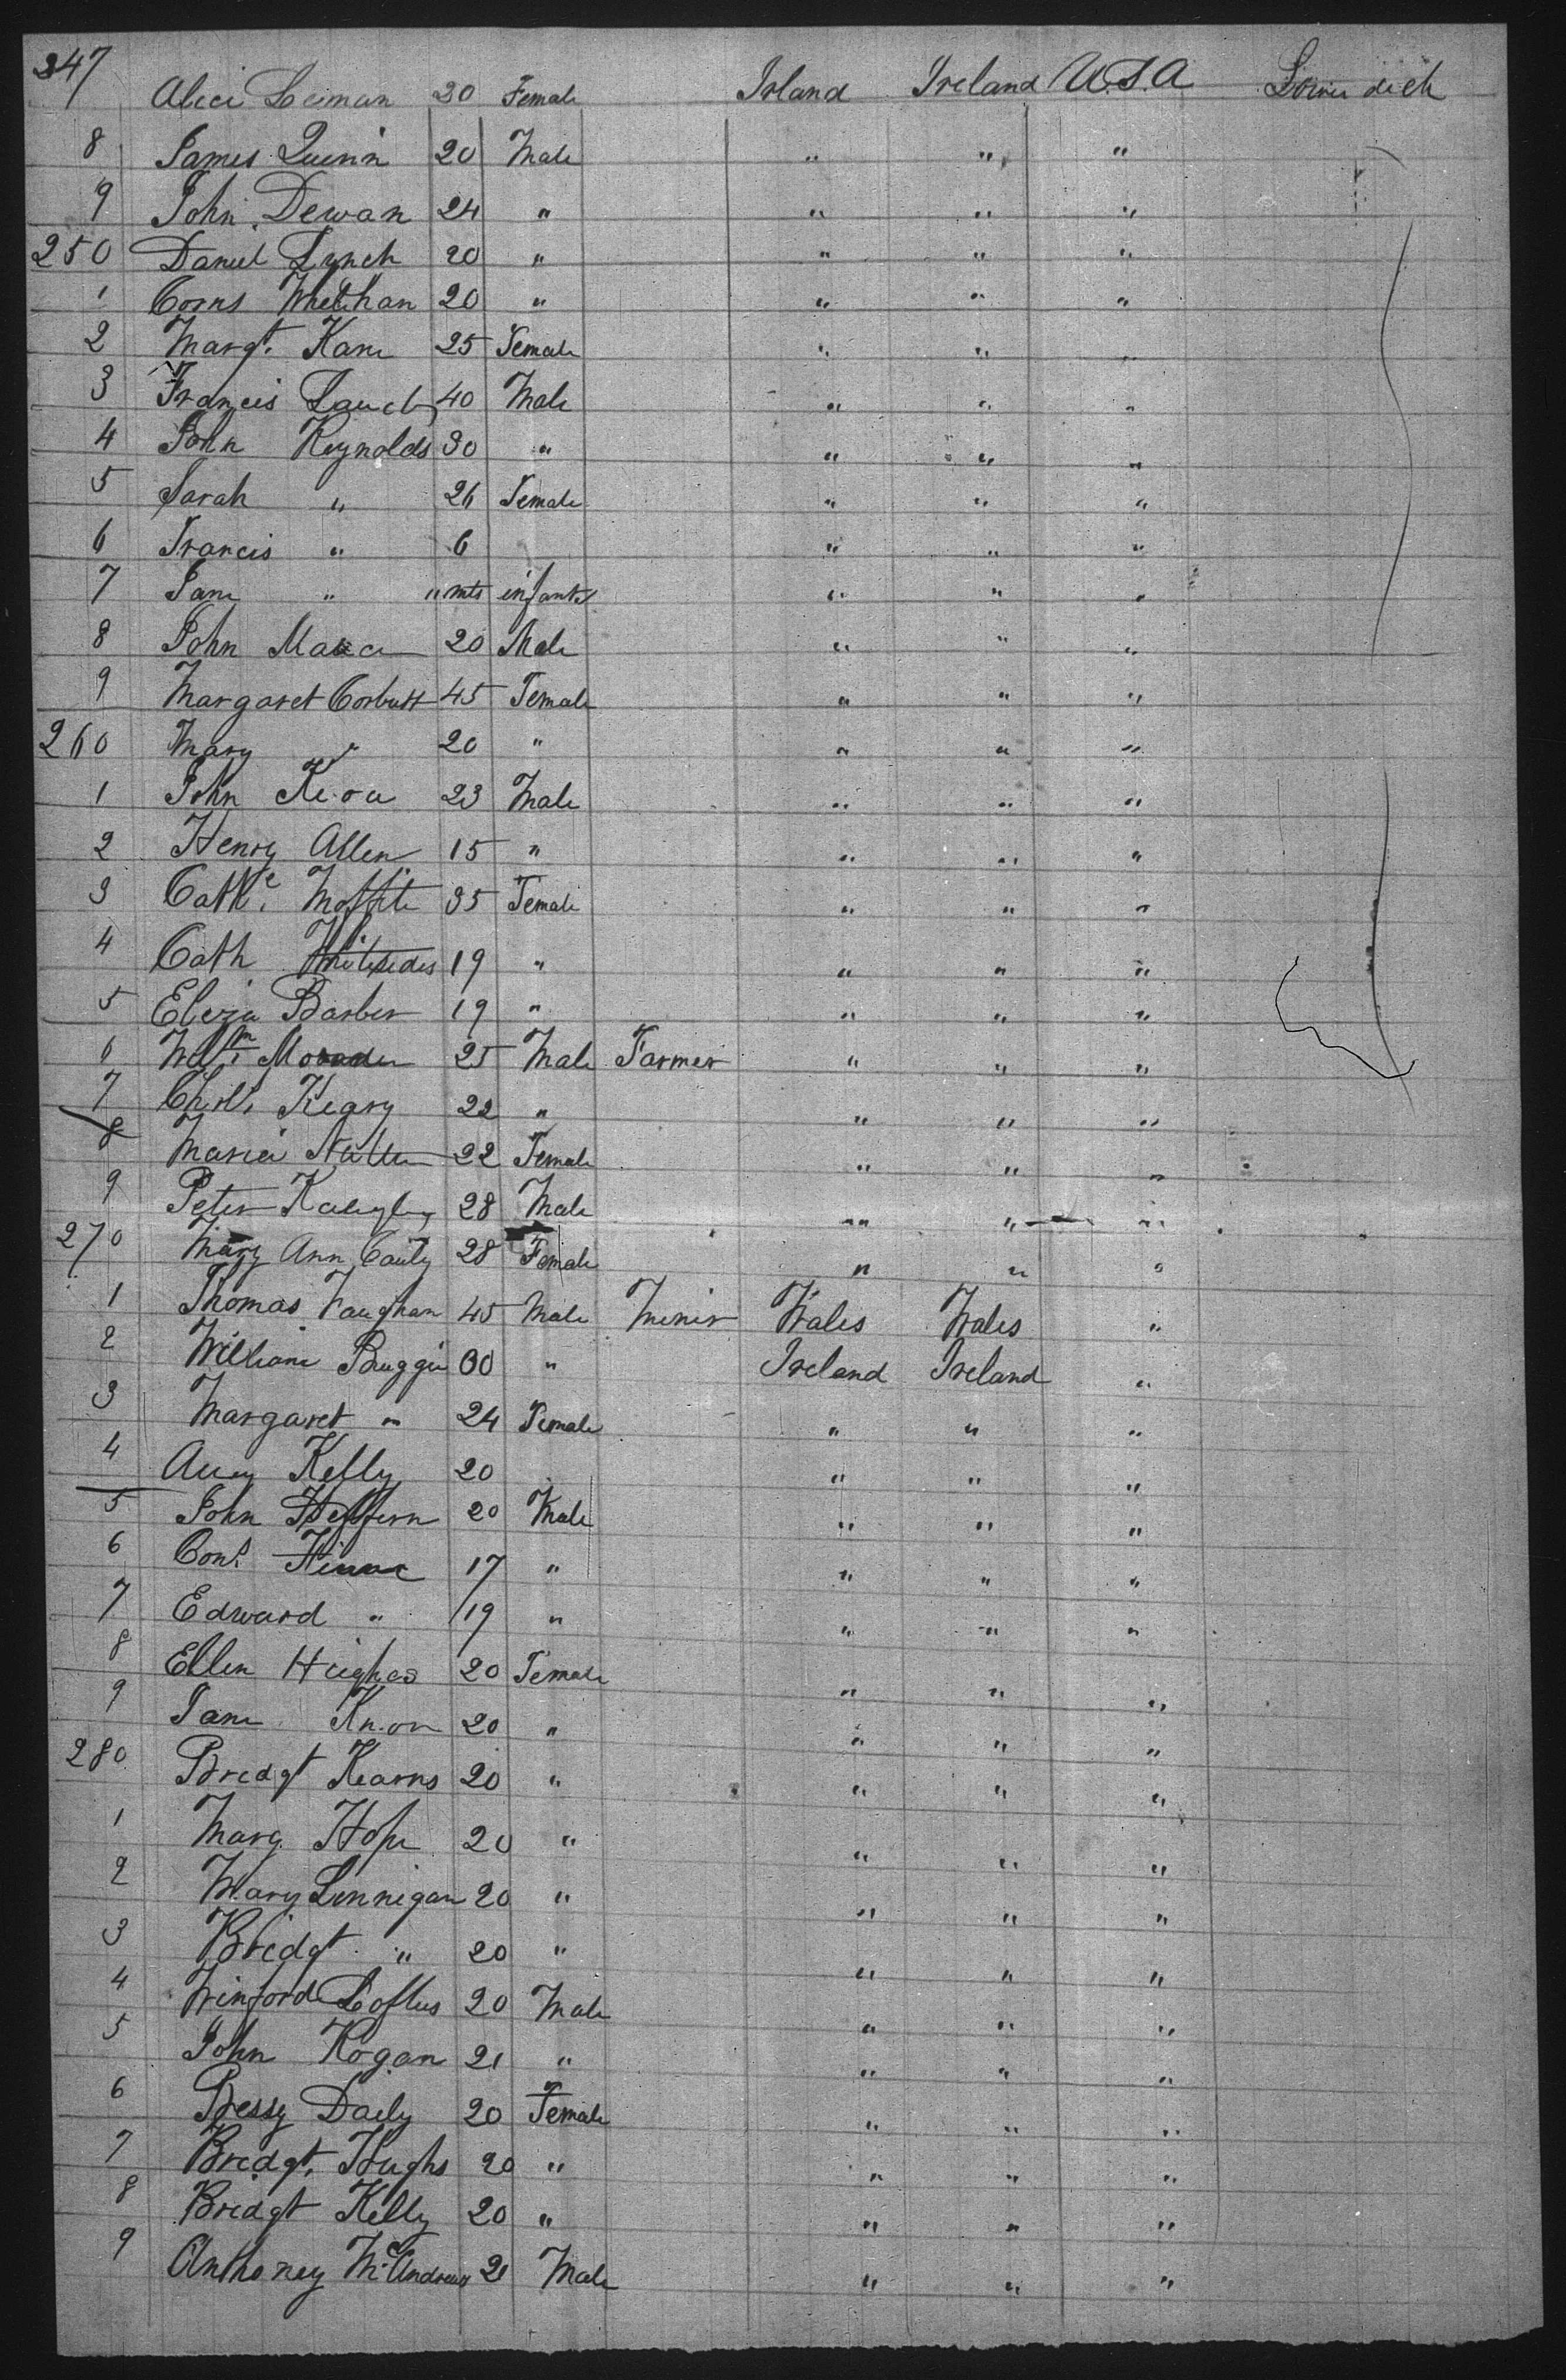 247 Alici Leeman 20 Female Irland Ireland U.S.A Lower deck
8 James Quinn 20 Male " " "
9 John Dewan 24 " " " "
250 Daniel Lynch 20 " " " "
1 Corns Whelihan 20 " " " "
2 Margt. Kane 25 Female " " "
3 Francis 40 Male " " "
4 John Reynolds 30 " " " "
5 Sarah " 26 Female " " "
6 Francis " 6 " " "
7 Jane " " mts infant " " "
8 John 20 Male " " "
9 Margaret Corbutt 45 Female " " "
260 Mary " 20 " " " "
1 John 23 Male " " "
2 Henry Allen 15 " " " "
3 Cathe. Moffite 35 Female " " "
4 Cath Whitesides 19 " " " "
5 Eliza Barber 19 " " " "
6 Willm 25 Male Farmer " " "
7 Keary 22 " " " "
8 Maria 22 Female " " "
9 Peter 28 Male " " "
270 Mary Ann Cauly 28 Female " " "
1 Thomas Vaughan 45 Male Miner Wales Wales "
2 William 60 " Ireland Ireland "
3 Margaret " 24 Female " " "
4 Kelly 20 " " "
5 John Heffern 20 Male " " "
6 17 " " " "
7 Edward " 19 " " " "
8 Ellen Hughes 20 Female " " "
9 Jane 20 " " " "
280 Bredgt Kearns 20 " " " "
1 Marg. Hope 20 " " " "
2 Mary Linnigan 20 " " " "
3 Bridgt " 20 " " " "
4 Winford Loftus 20 Male " " "
5 John Hogan 21 " " " "
6 Bessy Daily 20 Female " " "
7 Bredgt. Hughs 20 " " " "
8 Bredgt Kelly 20 " " " "
9 Anthoney McAndrew 21 Male " " "